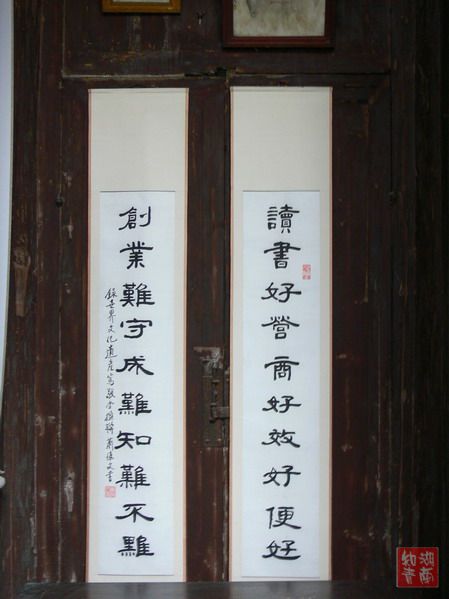 讀書好營商好效好便好
創業難守成難知難不難
錄世界文化遺產
楹聯
湖南
知青